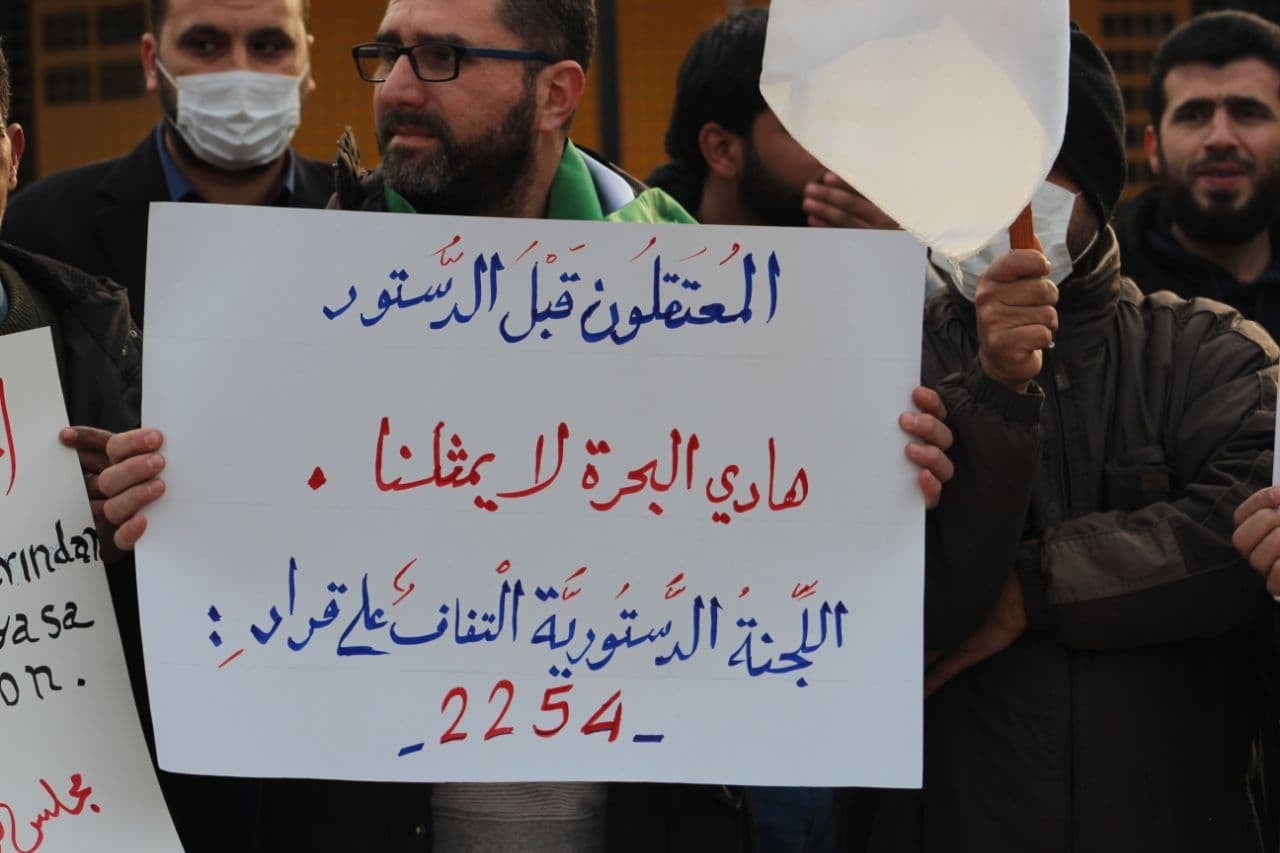 المُعتَقلُون قَبْلَ الدَّستور
هادي البحرة لا يمثلنا .
اللَّجنةُ الدَّستُوريَّة الْتفافٌ على قرارِ :
_ 2254 _
rından
yasa
on.
مجلس